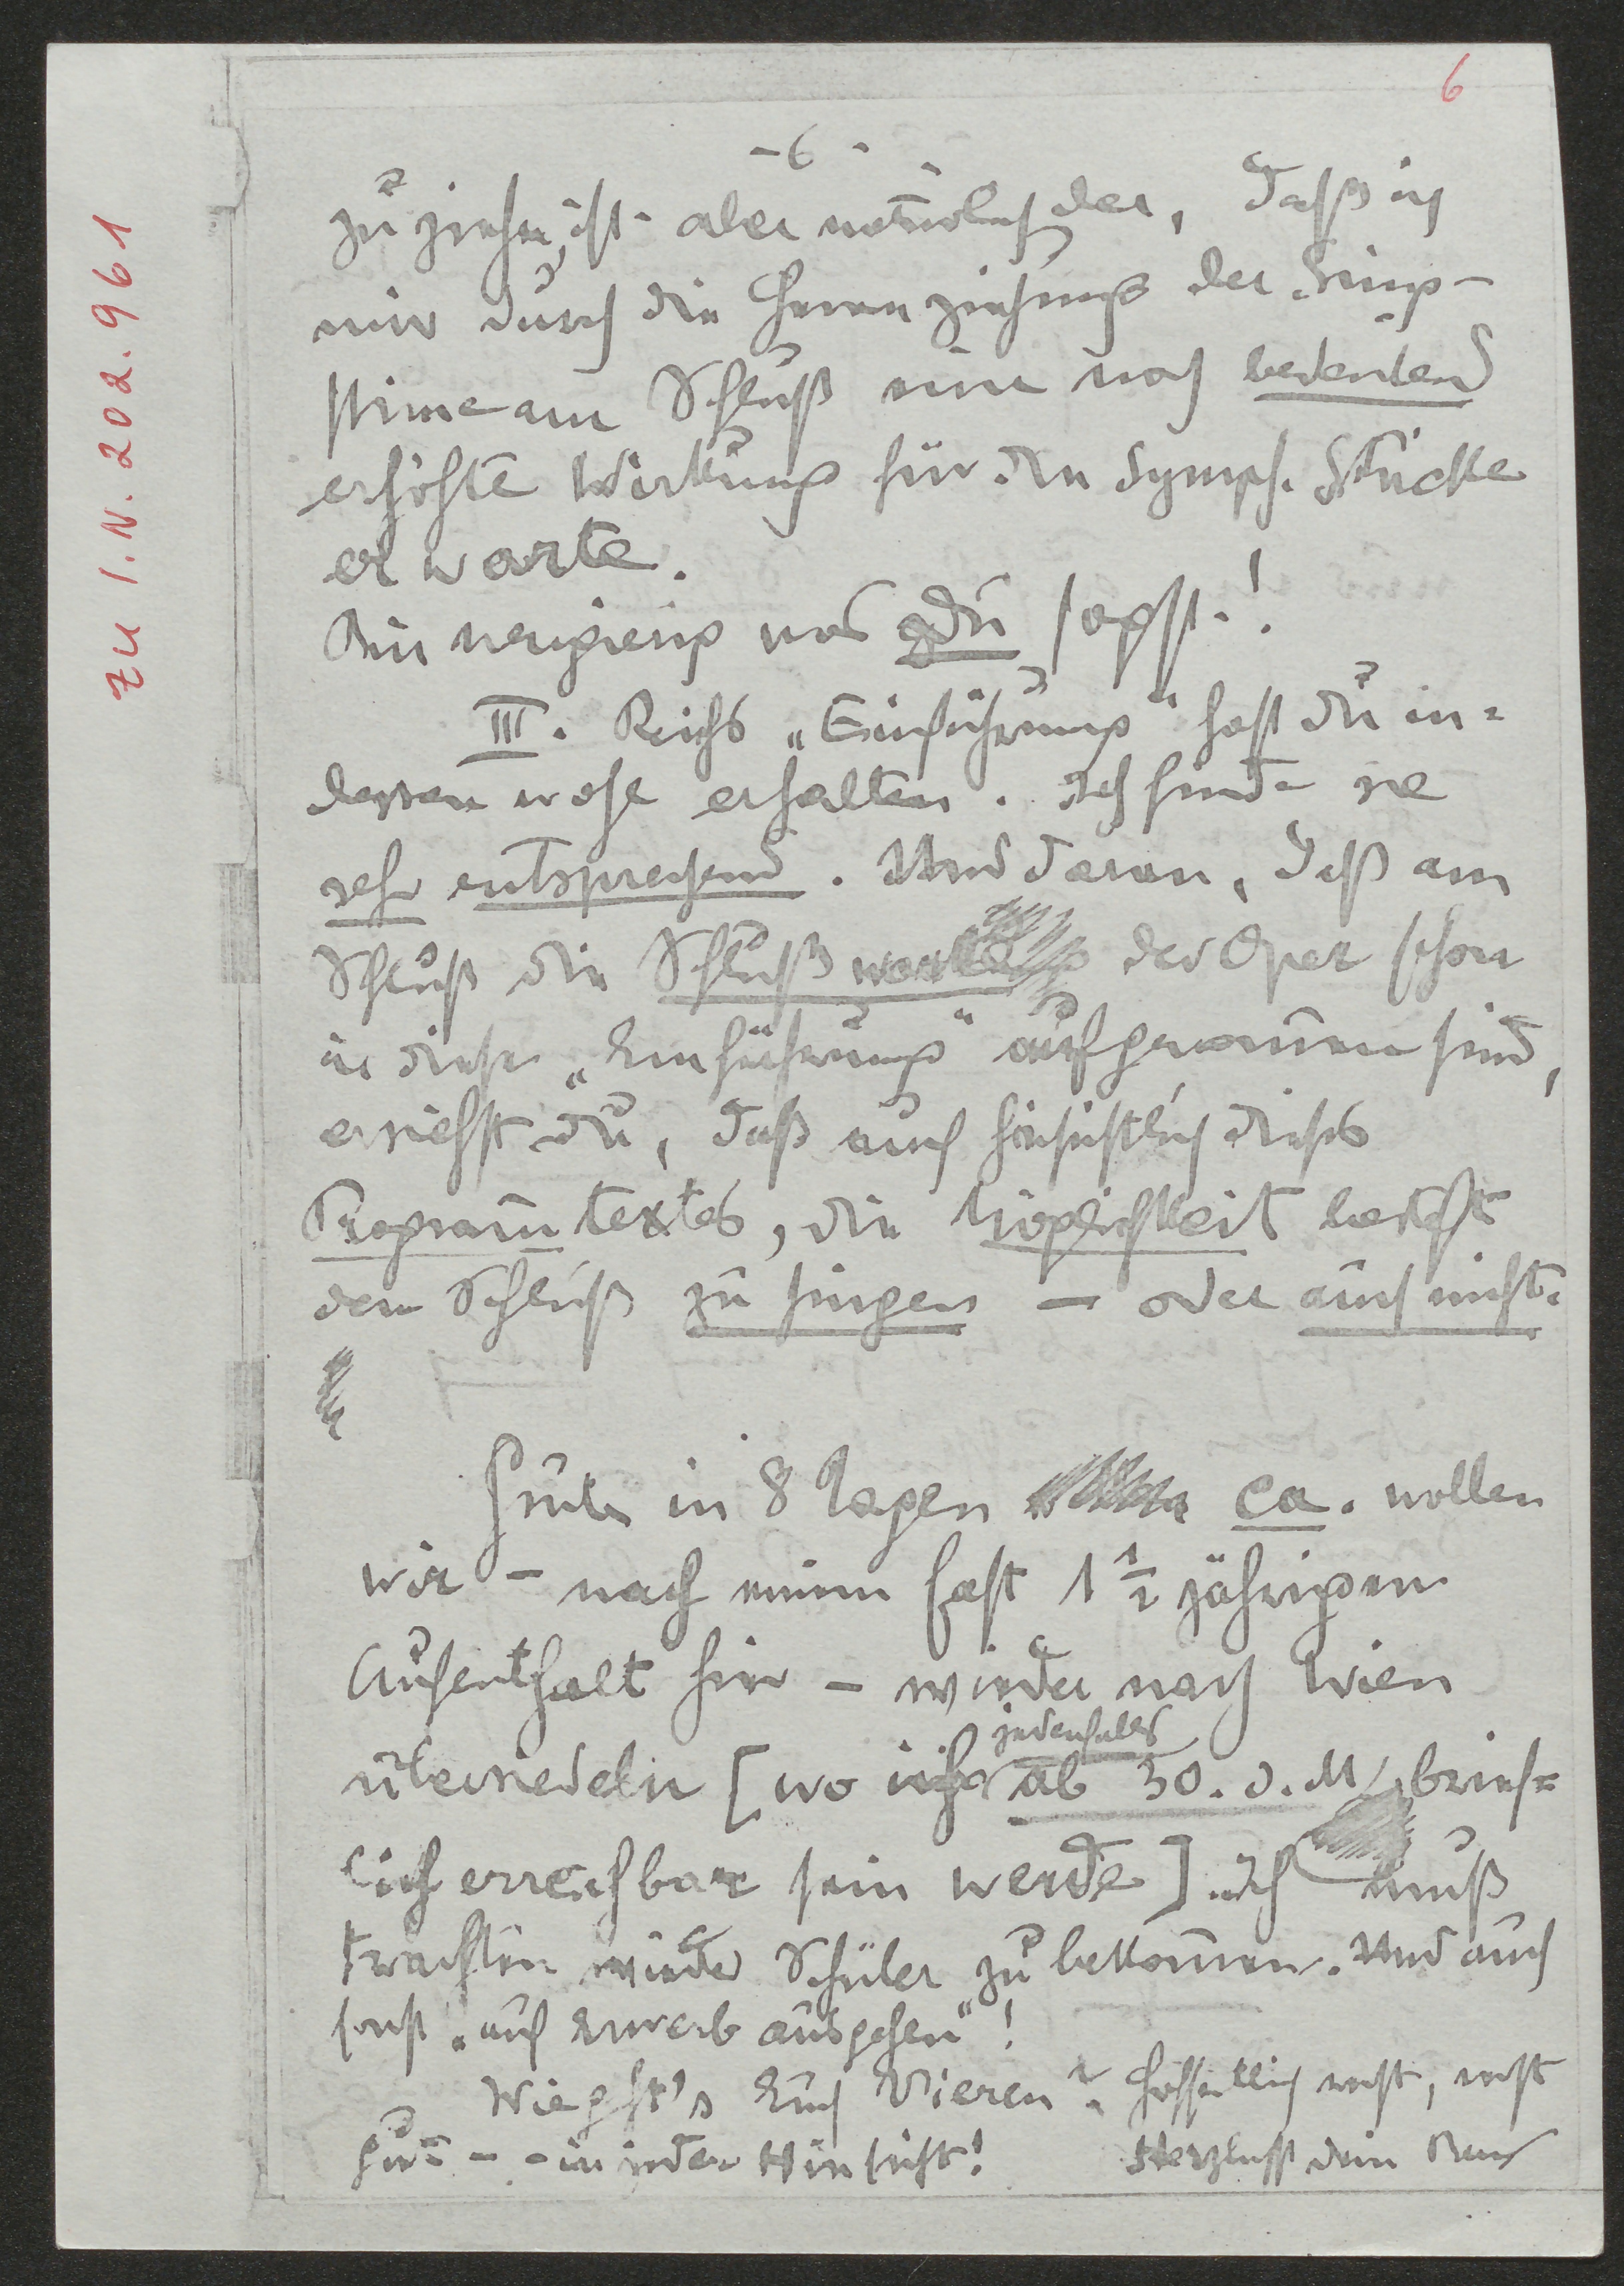 6
zu I.N. 202.961
- 6 -
zu ziehen, ist aber natürlich der, daß ich
mir durch die Heranziehung der Sing-
stimme am Schluß eine noch bedeutend
erhöhte Wirkung für die Symph. Stücke
erwarte.
Bin neugierig was Du sagst!
III. Reichs „Einführung" hast Du in=
dessen wohl erhalten. Ich finde sie
sehr entsprechend. Und daran, daß am
Schluß die Schlußworte der Oper schon
in diese „Einführung" aufgenommen sind,
ersiehst Du, daß auch hinsichtlich dieses
Programmtextes, die Möglichkeit besteht
den Schluß zu singen — oder auch nicht.
Heute in 8 Tagen ca. wollen
wir – nach einem fast 1 1/2 jährigen
Aufenthalt hier – wieder nach Wien
übersiedeln [wo ich jedenfalls ab 30. d. M. brief=
lich erreichbar sein werde]. Ich muß
trachten wieder Schüler zu bekommen. Und auch
sonst „auf Erwerb ausgehen"!
Wie geht's Euch Vieren? Hoffentlich recht, recht
gut – – in jeder Hinsicht! Herzlichst Dein